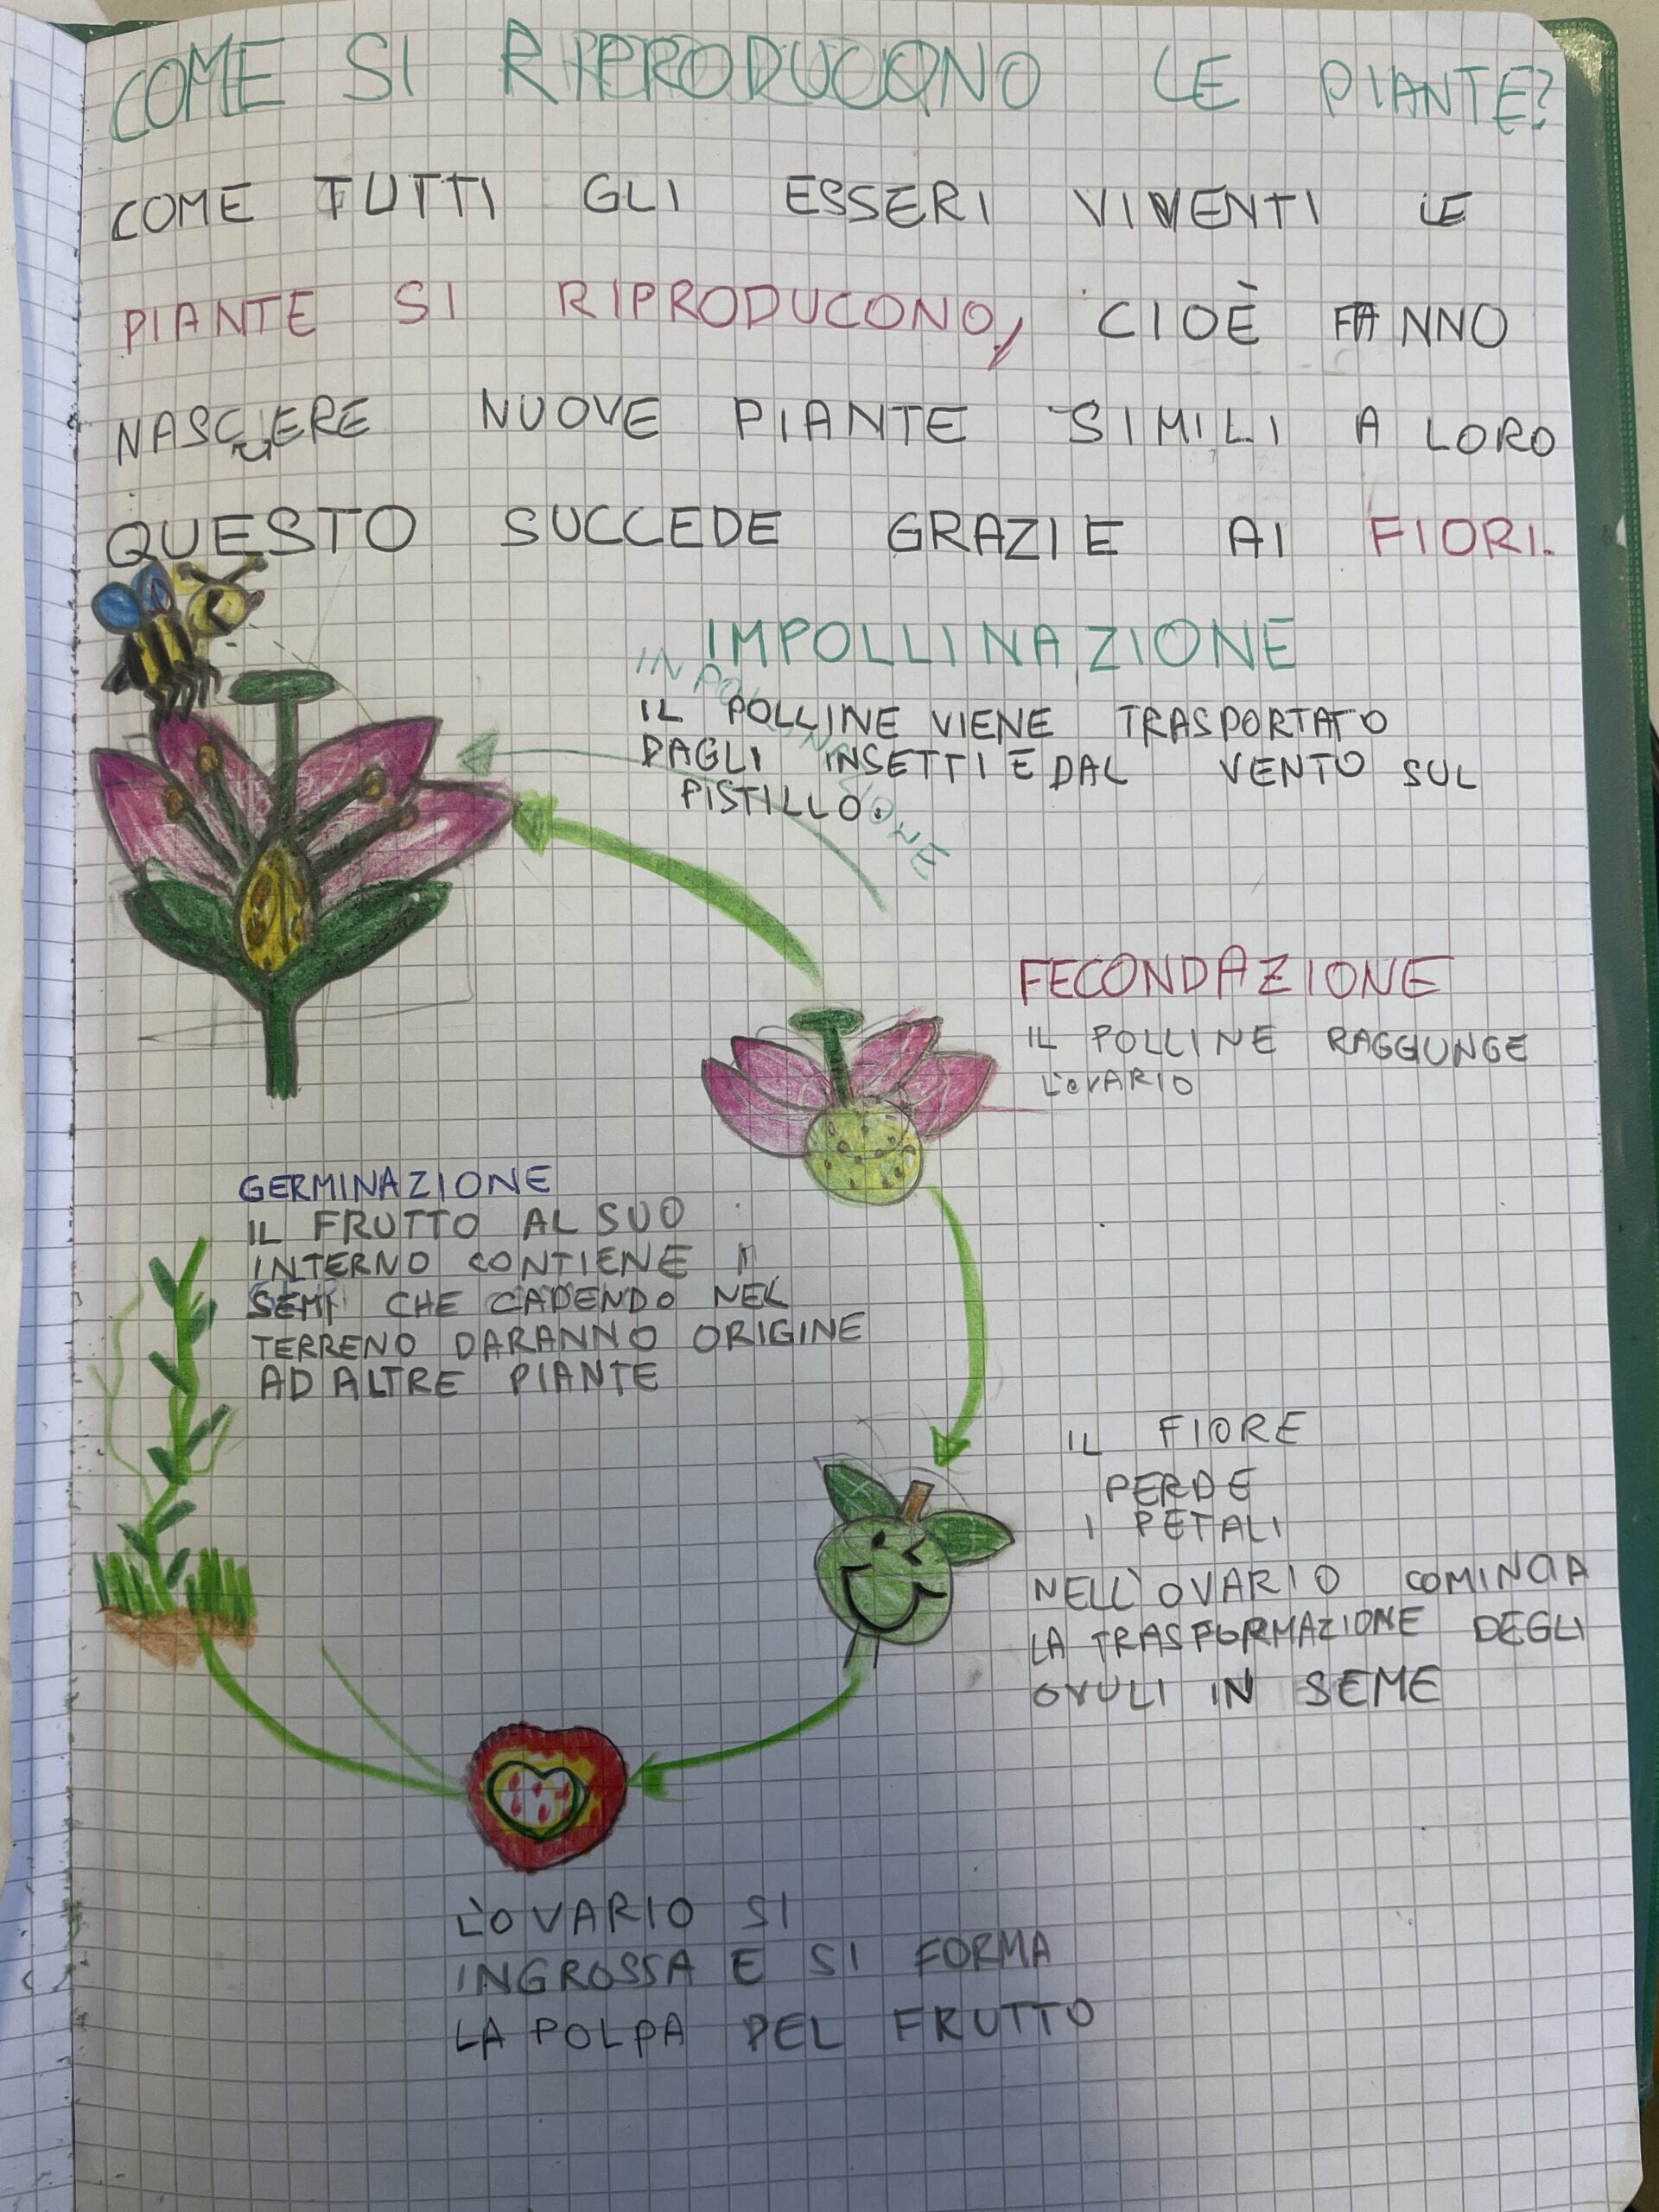 COME SI RIPRODUCONO LE PIANTE?
COME TUTTI GLI ESSERI VIVENTI LE
PIANTE SI RIPRODUCONO, CIOÈ FANNO
NASCERE NUOVE PIANTE SIMILI A LORO
QUESTO SUCCEDE GRAZIE AI FIORI.
IMPOLLINAZIONE
INPOLLINAZIONE
IL POLLINE VIENE TRASPORTATO
DAGLI INSETTI E DAL VENTO SUL
PISTILLO.
FECONDAZIONE
IL POLLINE RAGGIUNGE
L'OVARIO
GERMINAZIONE
IL FRUTTO AL SUO
INTERNO CONTIENE I
SEMI CHE CADENDO NEL
TERRENO DARANNO ORIGINE
AD ALTRE PIANTE
IL FIORE
PERDE
I PETALI
NELL'OVARIO COMINCIA
LA TRASFORMAZIONE DEGLI
OVULI IN SEME
L'OVARIO SI
INGROSSA E SI FORMA
LA POLPA DEL FRUTTO